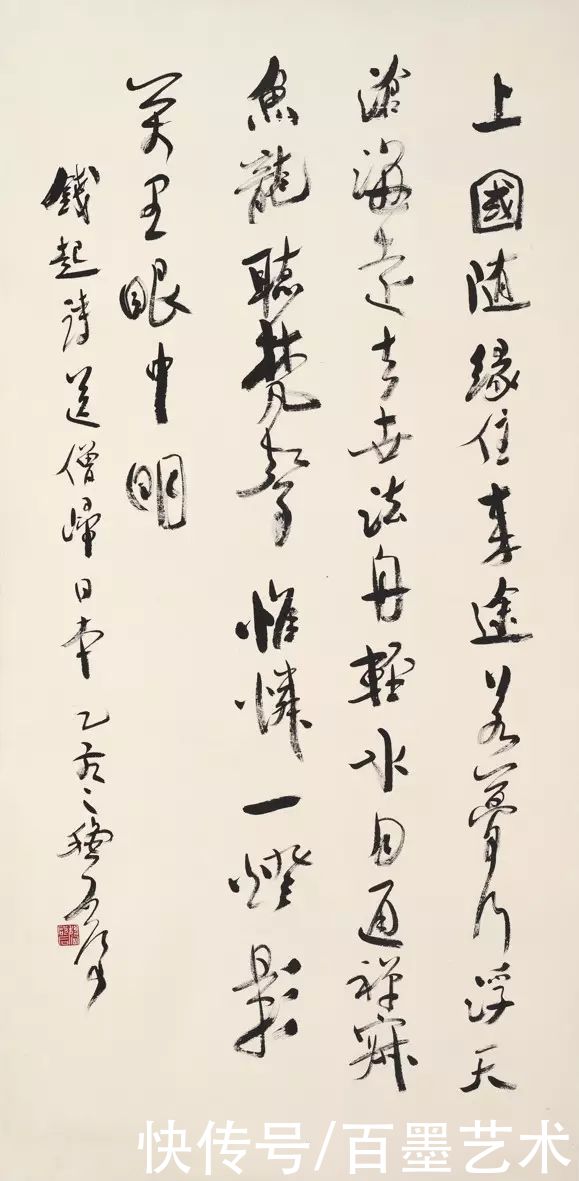 上國随緣住来途若夢行浮天
滄海遠去世法舟輕水月通禪寂
魚龍聽梵聲惟憐一燈影
萬里眼中明
錢起詩送僧歸日本 乙亥之穐
快传号/百墨艺术